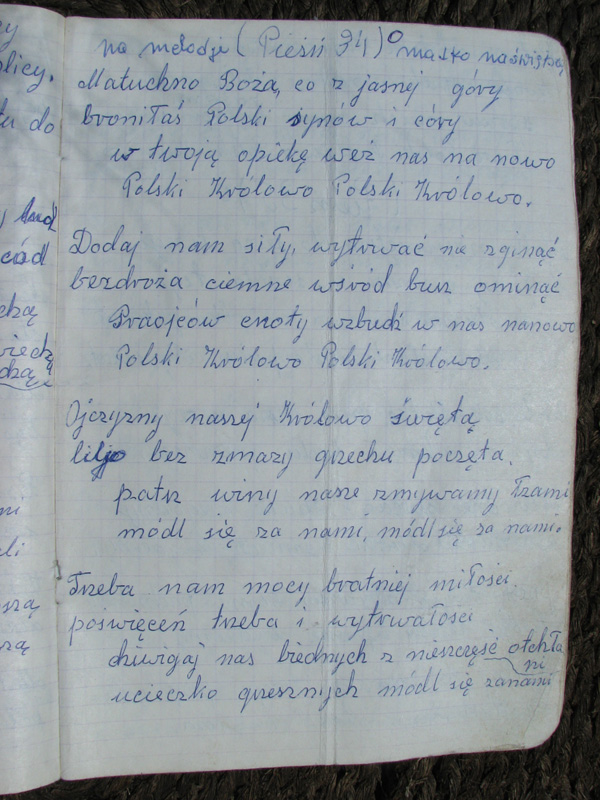 na melodje ( Pieśń 34) O matko naświętsza
Matuchno Boża, co z jasnej góry
broniłaś Polski synów i córy
w twoją opiekę weź nas na nowo
Polski Królowo Polski Królowo.
Dodaj nam siły, wytrwać nie zginąć
bezdroża ciemne wśród burz ominąć
Praojców cnoty wzbudź w nas nanowo
Polski Królowo Polski Królowo.
Ojczyzny naszej Królowo świętą
liljo bez zmazy grzechu poczęta.
patrz winy nasze zmywamy łzami
módl się za nami, módl się za nami.
Trzeba nam mocy bratniej miłości.
poświęceń trzeba i wytrwałości
dźwigaj nas biednych z nieszczęść otchła
ni
ucieczko grzesznych módl się zanami